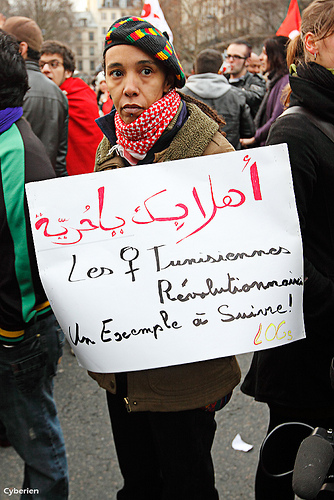 أهلا بك ياحُريّة
Les ♀ Tunisiennes
Révolutionnaires
Un Exemple à Suivre!
LOCs
Cyberien